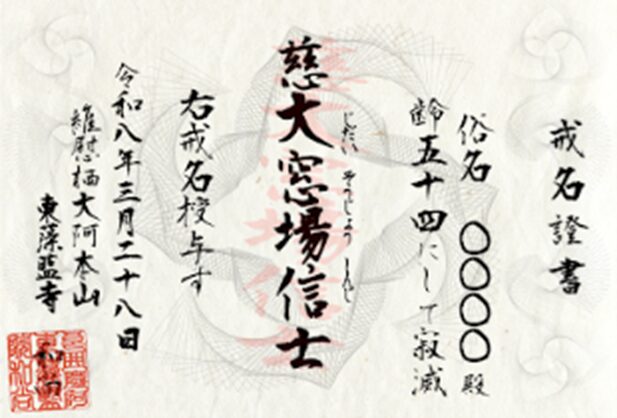 戒名證書
俗名 〇〇〇〇 殿
齢五十四にして寂滅
慈大窓場信士
じだい そうじょう しんじ
右戒名授与す
令和八年三月二十八日
維慰栖大阿本山
東藻監寺
和尚